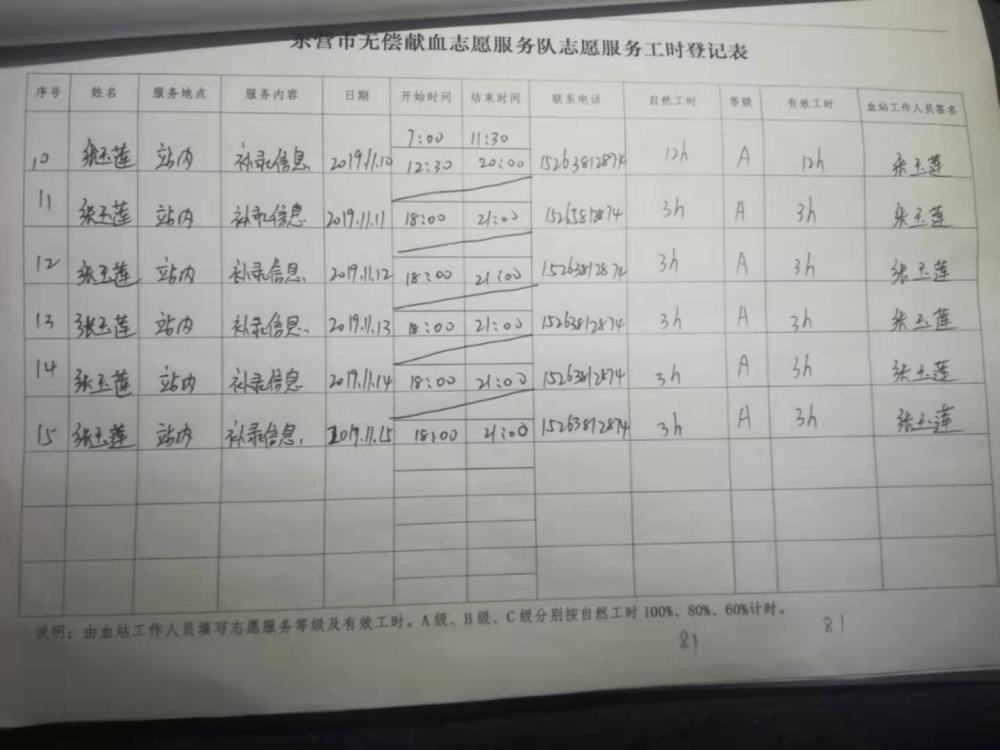 东营市无偿献血志愿服务队志愿服务工时登记表
序号 姓名 服务地点 服务内容 日期 开始时间 结束时间 联系电话 自然工时 等级 有效工时 血站工作人员签名
7:00 11:30
10 张玉莲 站内 补录信息 2019.11.10 12:30 20:00 15263812874 12h A 12h 张玉莲
11 张玉莲 站内 补录信息 2019.11.11 18:00 21:00 15265812874 3h A 3h 张玉莲
12 张玉莲 站内 补录信息 2019.11.12 18:00 21:00 15263812874 3h A 3h 张玉莲
13 张玉莲 站内 补录信息、 2019.11.13 18:00 21:00 15263812874 3h A 3h 张玉莲
14 张玉莲 站内 补录信息 2019.11.14 18:00 21:00 15263812874 3h A 3h 张玉莲
15 张玉莲 站内 补录信息、 2019.11.15 18:00 21:00 15263812874 3h A 3h 张玉莲
说明：由血站工作人员填写志愿服务等级及有效工时。A级、B级、C级分别按自然工时100%、80%、60%计时。
81 81